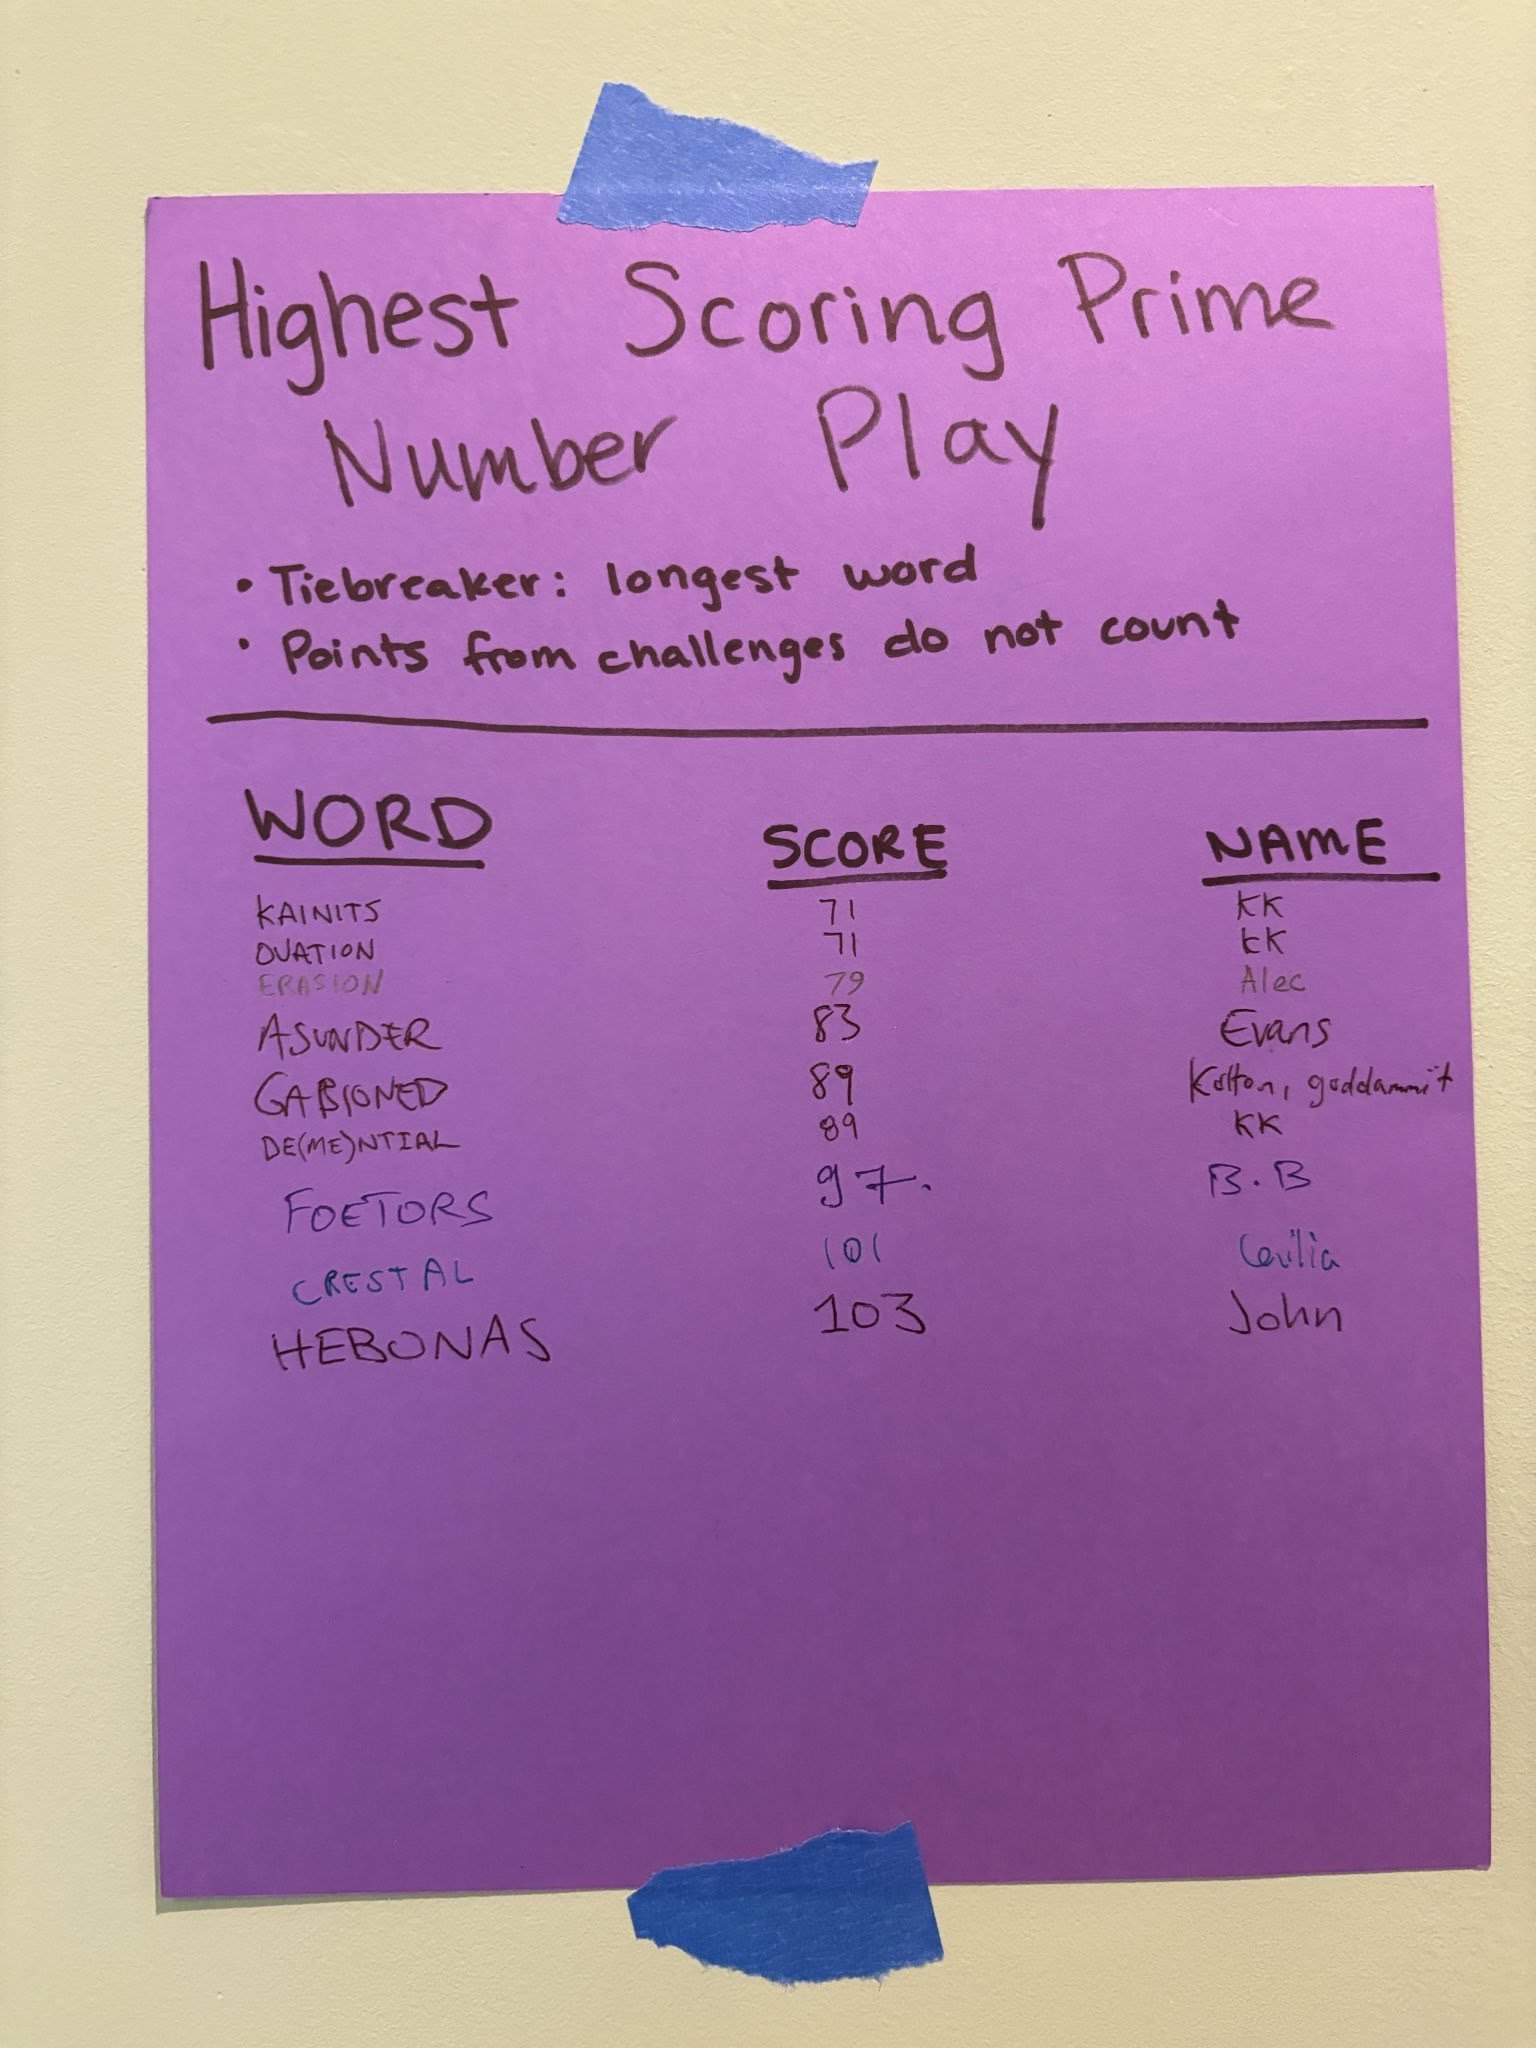 Highest Scoring Prime
Number Play
• Tiebreaker: longest word
• Points from challenges do not count
WORD SCORE NAME
KAINITS 71 KK
OVATION 71 KK
ERASION 79 Alec
ASUNDER 83 Evans
GABIONED 89 Kolton, goddammit
DE(ME)NTIAL 89 KK
FOETORS 97. B.B
CRESTAL 101 Cecilia
HEBONAS 103 John